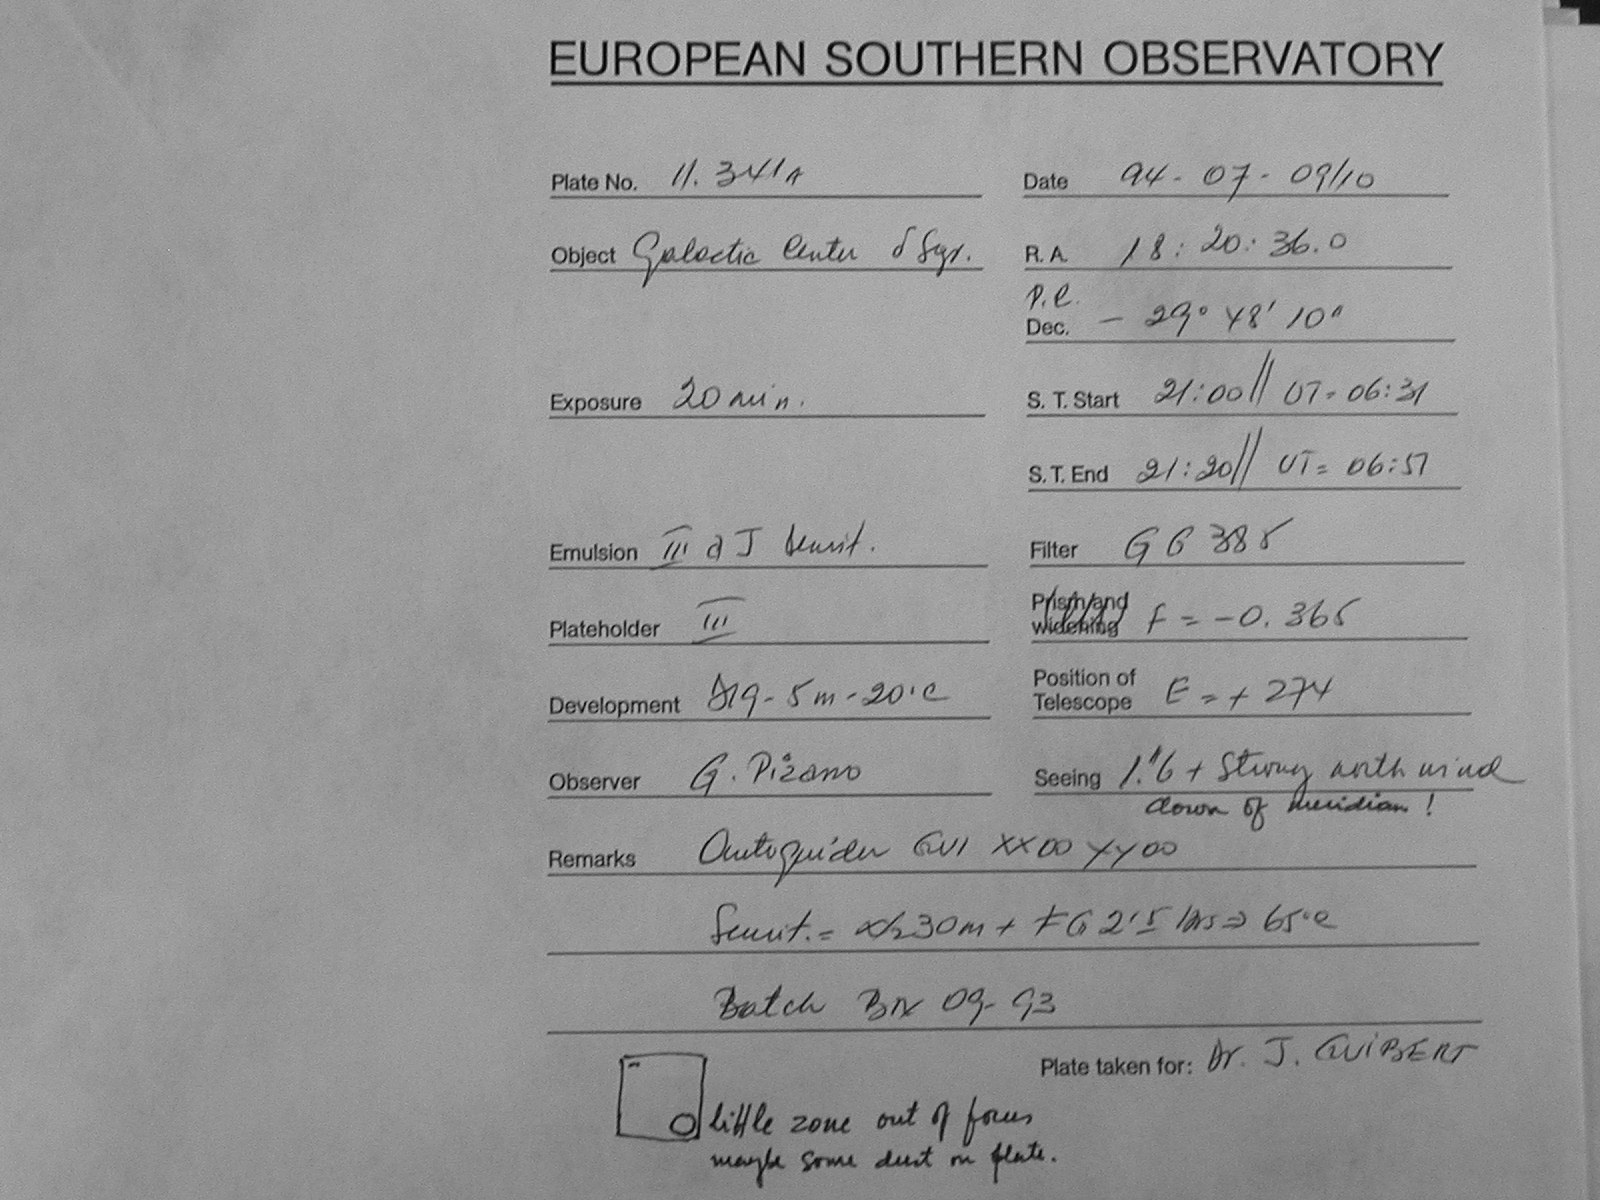 EUROPEAN SOUTHERN OBSERVATORY
Plate No. 11.341A Date 94-07-09/10
Object Galactic Center δ Sgr. R.A. 18:20:36.0
P.E.
Dec. - 29° 48' 10"
Exposure 20 min. S.T. Start 21:00 // UT= 06:31
S.T. End 21:20 // UT= 06:51
Emulsion III a J Sensit. Filter GG 385
Plateholder III Prism and widening f = -0.365
Development D19-5m-20°C Position of Telescope E = + 274
Observer G. Pizarro Seeing 1."6 + Strong north wind
down of meridian!
Remarks Autoguider GUI XX00 YY00
Sensit. = 30m + FG 2'5 hrs => 65°C
Batch 09-93
Plate taken for: Dr. J. GUIBERT
little zone out of focus
maybe some dust on plate.